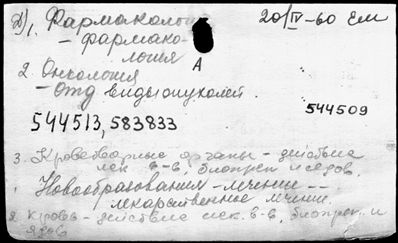 Д/1. Фармакология 20/IV-60 Ем
– фармако-
логия
А
2. Онкология
– Отд виды опухолей.
544509
544513, 583833
3. Кроветворные органы – действие
лек. в-в, биопреп. и ядов.
1. Новообразования – лечение --
лекарственное лечение.
2. Кровь – действие лек. в-в, биопреп. и
ядов